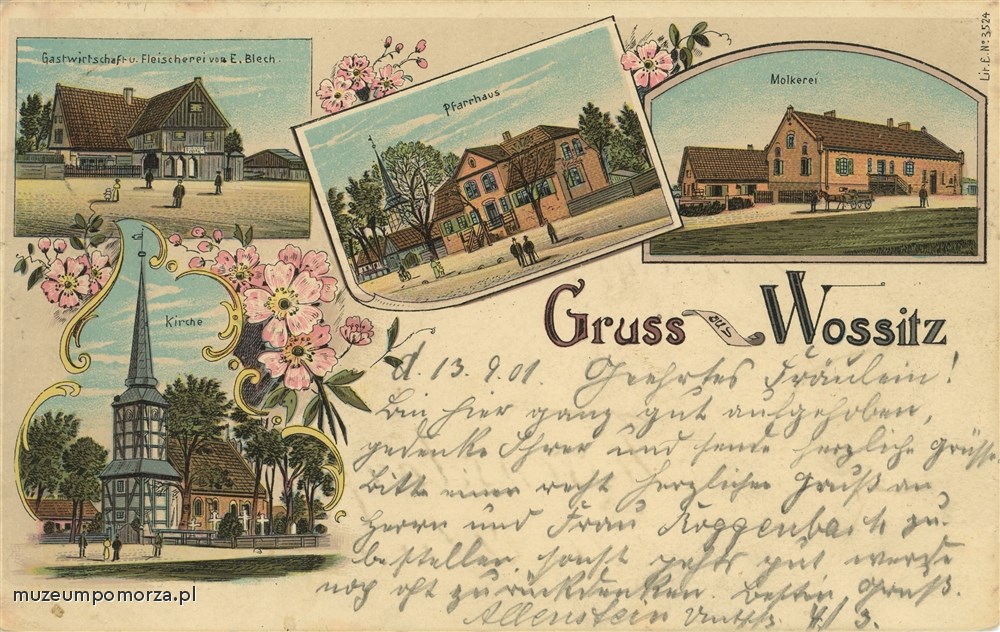 Gastwirtschaft u. Fleischerei von E. Blech.
Pfarrhaus
Molkerei
Lit. E. No. 3524
Kirche
Gruss aus Wossitz
d. 13.9.01. Geehrtes Fräulein!
Bin hier ganz gut aufgehoben,
gedenke Ihrer und sende herzliche Grüsse
Bitte einen recht herzlichen Gruß an
Herrn und Frau Roggenbach zu
bestellen, sonst gehts gut werde
noch oft zurückdenken. Besten Gruß.
Allenstein
muzeumpomorza.pl